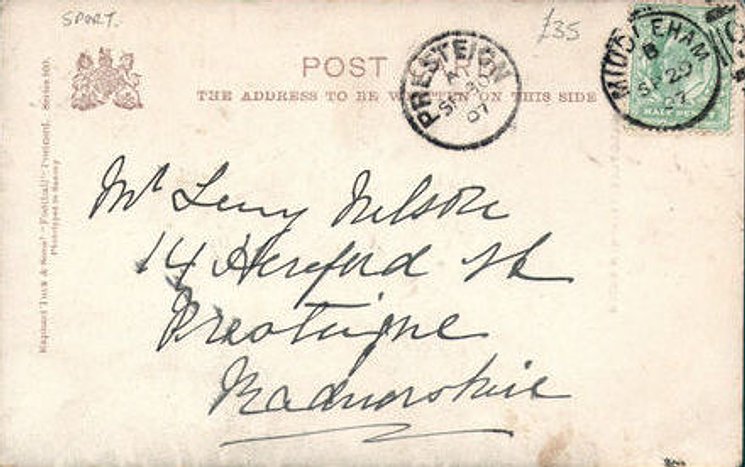 SPORT.
£35
POST CARD
THE ADDRESS TO BE WRITTEN ON THIS SIDE
PRESTEIGN
A
SP
07
MIDDLEHAM
B
SP 20
07
HALF PENNY
Mr Nelson
14 Hereford St
Presteigne
Radnorshire
Raphael Tuck & Sons' "Football" Postcard, Series 895.
Phototyped in Saxony